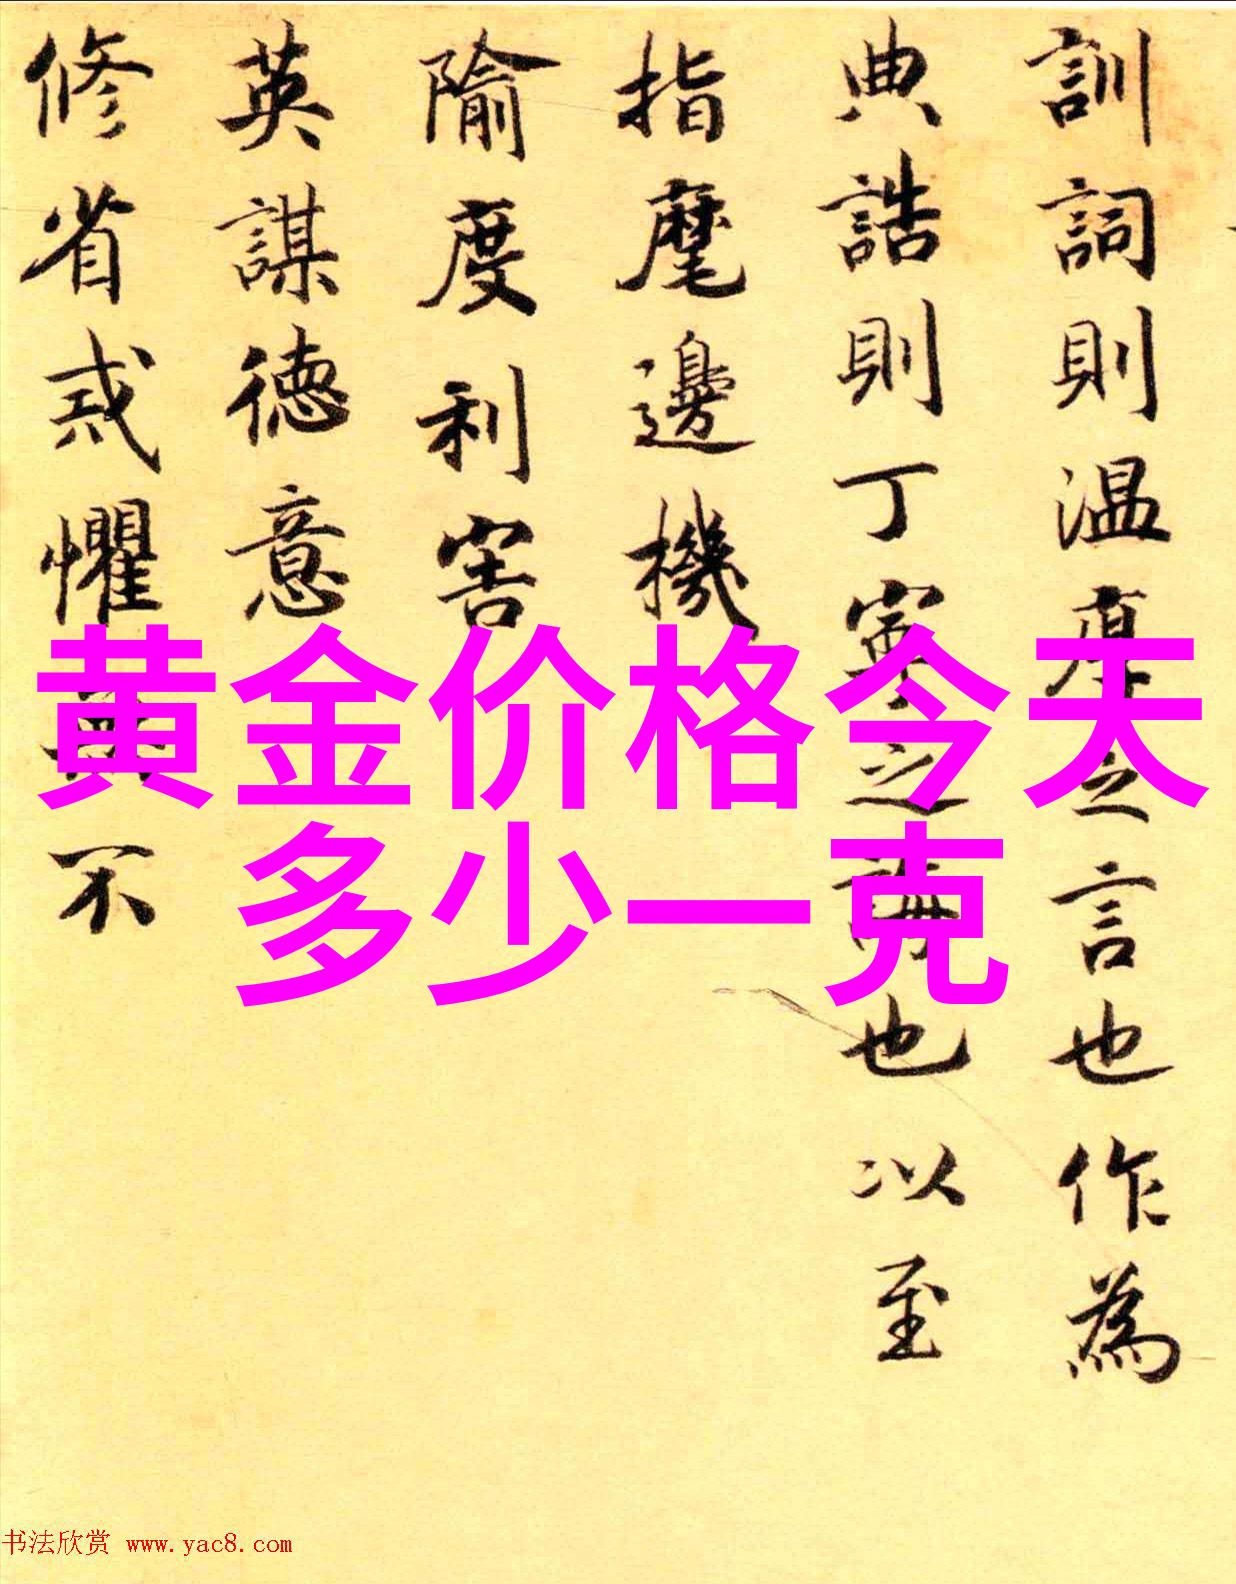 訓詞則温厚之言也作為
典誥則丁寧之誨也以至
指麾邊機
隃度利害
英謀徳意
修省戒懼無不
黄金价格今天
多少一克
书法欣赏 www.yac8.com